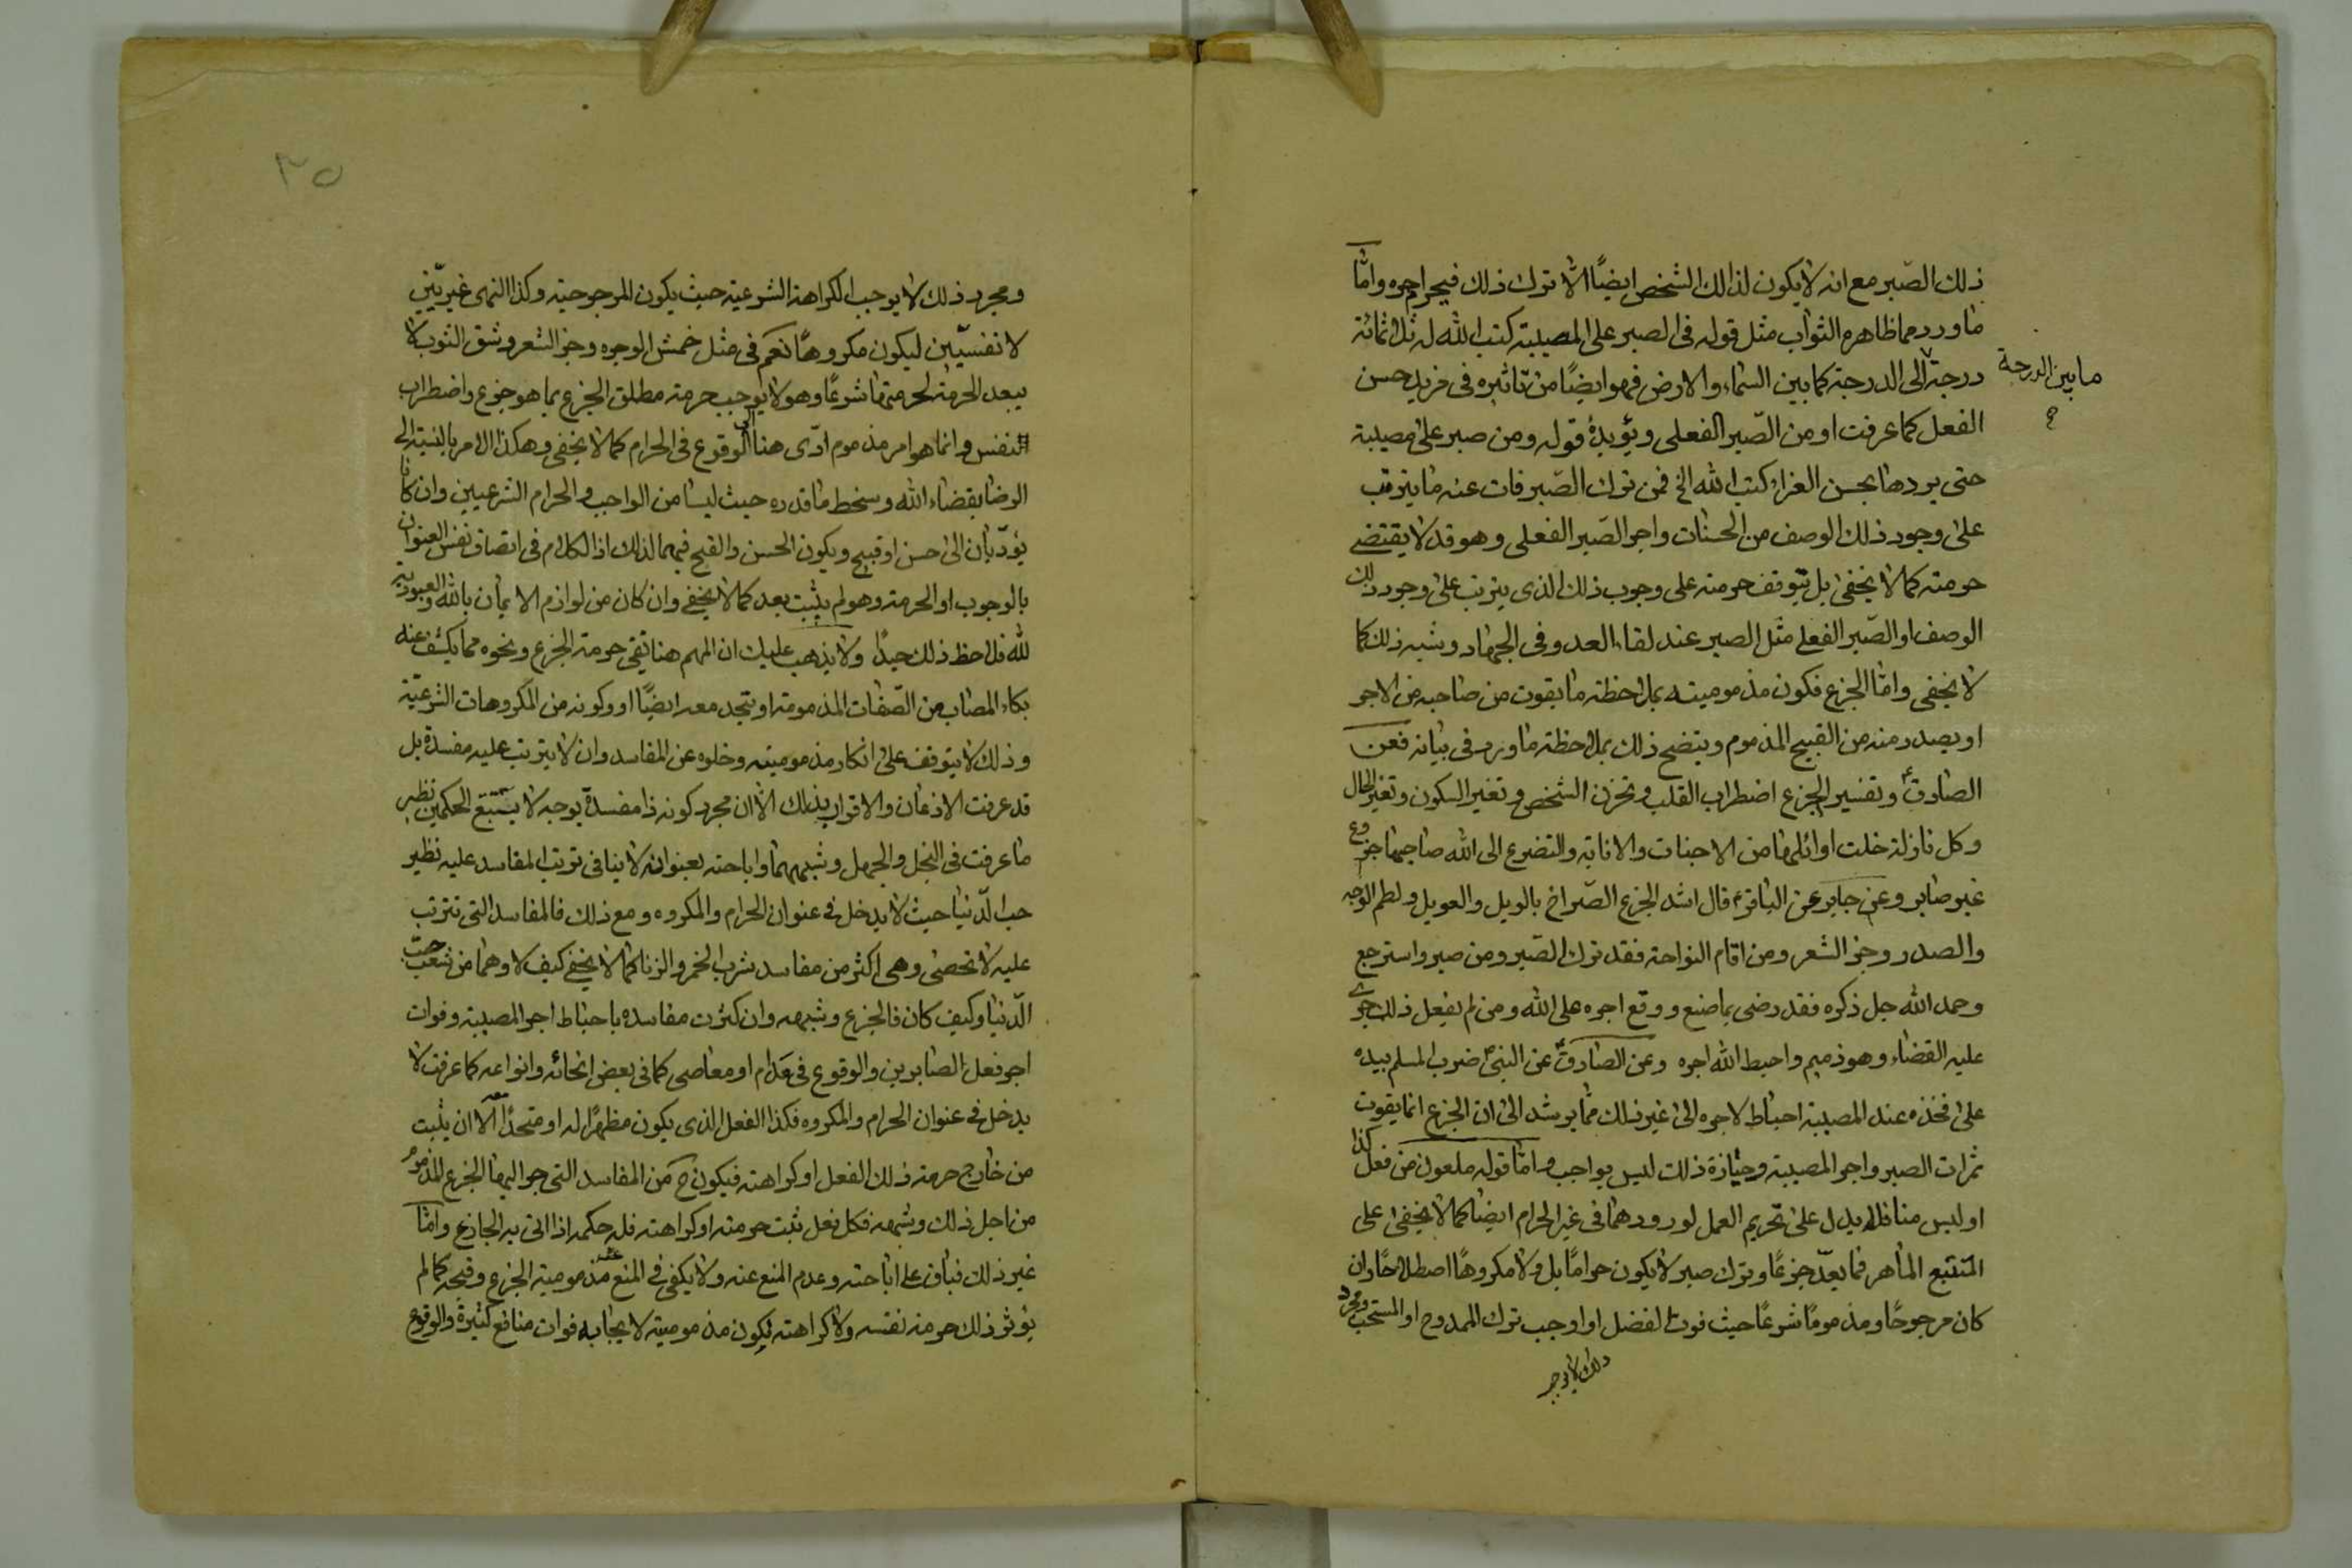 ذلك الصّبر مع انه لا يكون لذالك الشخص ايضًا الّا ترك ذلك فيحرم اجره وامّا
ما ورد مما ظاهره الثواب مثل قوله فى الصبر على المصيبة كتب الله له ثلثمائة
درجة الى الدرجة كما بين السّماء والارض فهو ايضًا من تاثيره فى مزيد حسن
ما بين الدرجة
الفعل كما عرفت او من الصّبر الفعلى ويؤيدهٔ قوله ومن صبر على مصيبة
حتى يردها بحسن العزاء كتب الله الخ فمن ترك الصّبر فات عنه ما يترتب
على وجود ذلك الوصف من الحسنات واجر الصّبر الفعلى وهو قد لا يقتضى
حرمته كما لا يخفى بل يتوقف حرمته على وجوب ذلك الذى يترتب على وجود ذلك
الوصف او الصّبر الفعلى مثل الصبر عند لقاء العدو فى الجهاد وشبه ذلك كما
لا يخفى وامّا الجزع فكون مذموميته بملاحظة ما يفوت من صاحبه من الاجر
او يصدر منه من القبيح المذموم ويتضح ذلك بملاحظة ما ورد فى بيانه فعن
الصادق ع وتفسير الجزع اضطراب القلب وتحزن الشخص وتغير السكون وتغير الحال
وكل نازلة خلت اوائلها من الاخبات والانابة والتضرع الى الله صاحبها جزوع
غير صابر وعن جابر عن الباقر ع قال اشد الجزع الصّراخ بالويل والعويل ولطم الوجه
والصدر وجز الشعر ومن اقام النواحة فقد ترك الصّبر ومن صبر واسترجع
وحمد الله جل ذكره فقد رضى بما صنع ووقع اجره على الله ومن لم يفعل ذلك جرى
عليه القضاء وهو ذميم واحبط الله اجره وعن الصّادق ع عن النبى ص ضرب المسلم بيده
على فخذه عند المصيبة احباط لاجره الى غير ذلك ممّا يرشد الى ان الجزع انما يفوت
ثمرات الصبر واجر المصيبة وحيازة ذلك ليس بواجب وامّا قوله ملعون من فعل كذا
او ليس منا فلا يدل على تحريم العمل لورودهما فى غير الحرام ايضًا كما لا يخفى على
المتتبع الماهر فما يعدّ جزعًا وترك صبر لا يكون حرامًا بل ولا مكروهًا اصطلاحًا وان
كان مرجوحًا ومذمومًا شرعًا حيث فوت الفضل او اوجب ترك الممدوح او المستحب ومجرد
ذلك لا يوجب
٣٥
ومجرد ذلك لا يوجب الكراهة الشرعية حيث يكون المرجوحية وكذا النهى غيريّين
لا نفسيّين ليكون مكروهًا نعم فى مثل خمش الوجوه وجز الشعر وشق الثوب لا
يبعد الحرمة لحرمتها شرعًا وهو لا يوجب حرمة مطلق الجزع بما هو جزع واضطراب
النفس وانما هو امر مذموم ادّى هنا الى الوقوع فى الحرام كما لا يخفى وهكذا الامر بالنسبة الى
الرضا بقضاء الله وسخط ما قدره حيث ليسا من الواجب والحرام الشرعيين وان كانا
يؤدّيان الى حسن او قبيح ويكون الحسن والقبح فيهما لذالك اذ الكلام فى اتصاف نفس العنوان
بالوجوب او الحرمة وهو لم يثبت بعد كما لا يخفى وان كان من لوازم الايمان بالله والعبودية
لله فلاحظ ذلك جيدًا ولا يذهب عليك ان المهم هنا نفى حرمة الجزع ونحوه مما يكشف عنه
بكاء المصاب من الصّفات المذمومة او يتحد معه ايضًا او وكونه من المكروهات الشرعيّة
وذلك لا يتوقف على انكار مذموميته وخلوه عن المفاسد وان لا يترتب عليه مفسدة بل
قد عرفت الاذعان والاقرار بذلك الّا ان مجرد كونه ذا مفسدة بوجه لا يستتبع الحكمين نظير
ما عرفت فى البخل والجهل وشبههما واباحته بعنوانه لا ينافى ترتب المفاسد عليه نظير
حب الدّنيا حيث لا يدخل فى عنوان الحرام والمكروه ومع ذلك فالمفاسد التى تترتب
عليه لا تحصى وهى اكثر من مفاسد شرب الخمر والزنا كما لا يخفى كيف لا وهما من شعب حبّ
الدّنيا وكيف كان فالجزع وشبهه وان كثرت مفاسده باحباط اجر المصيبة وفوات
اجر فعل الصابرين والوقوع فى حرام او معاصى كما فى بعض انحائه وانواعه كما عرفت لا
يدخل فى عنوان الحرام والمكروه فكذا الفعل الذى يكون مظهرًا له او متحدًا معه الّا ان يثبت
من خارج حرمة ذلك الفعل او كراهته فيكون ح من المفاسد التى جر اليها الجزع المذموم
من اجل ذلك وشبهه فكل فعل ثبت حرمته او كراهته فله حكمه اذا اتى به الجازع وامّا
غير ذلك فباق على اباحته وعدم المنع عنه ولا يكفى فى المنع عنه مذمومية الجزع وقبحه كما لم
يؤثر ذلك حرمة نفسه ولا كراهته لكون مذموميته لا يجابه فوات منافع كثيرة والوقوع